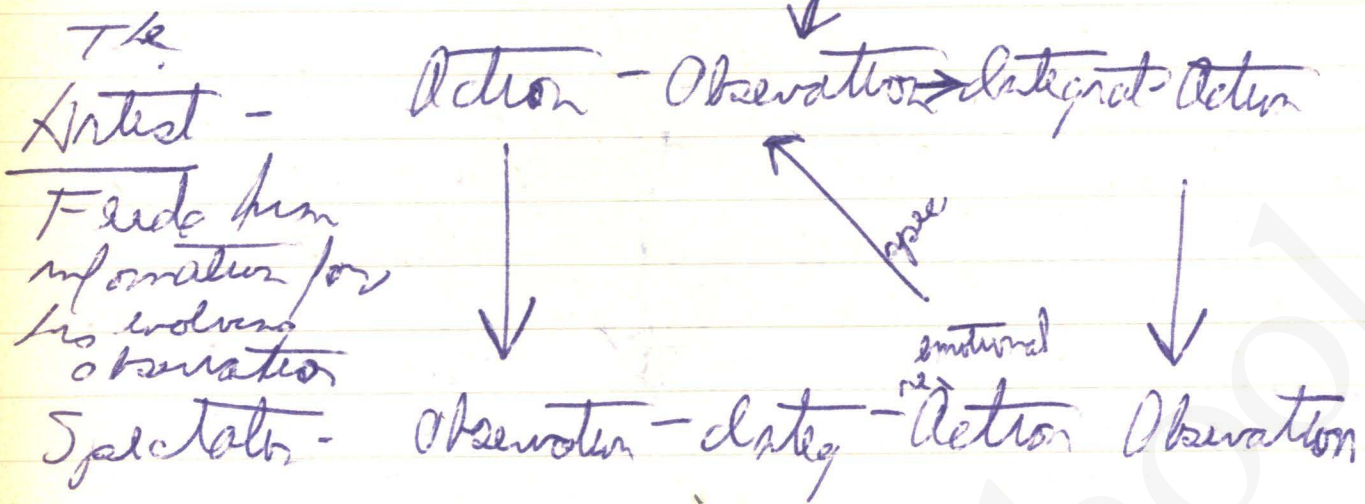 The
Artist - Action - Observation → Integrat - Action
Feeds him
information for
his evolving
observation
emotional
re
Spectator - Observation - Integ - Action Observation